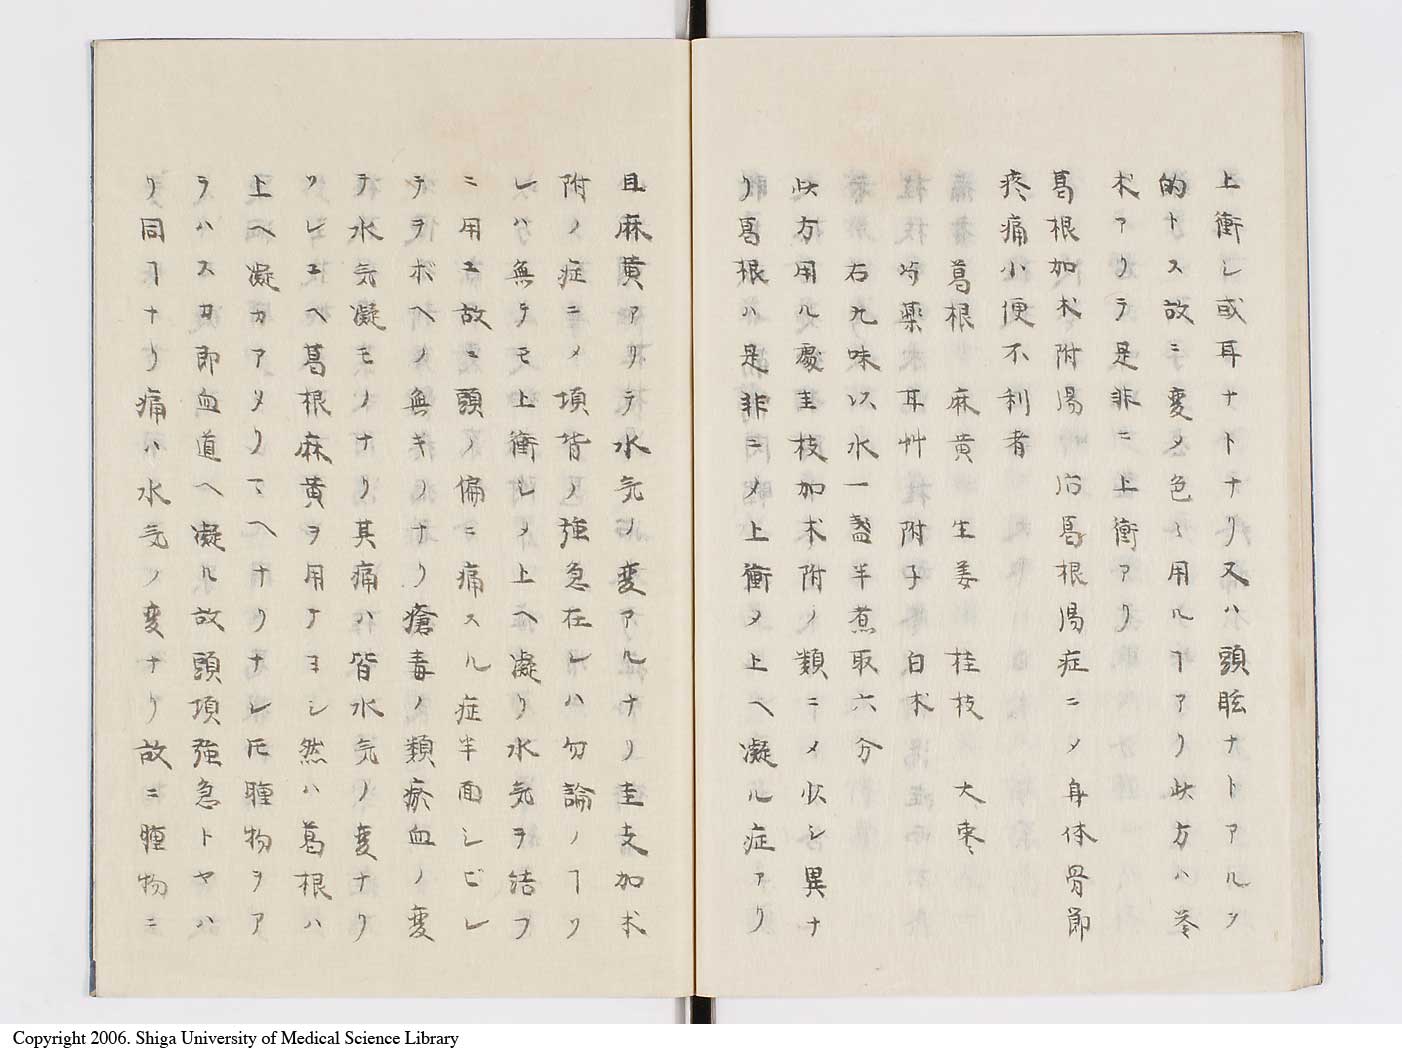 上衝シ或耳ナトナリ又ハ頭眩ナトアルヲ
的トス故ニ変〆色〻用ルヿアリ此方ハ苓
朮アリテ是非ニ上衝アリ
葛根加朮附湯 治葛根湯症ニ〆身体骨節
疼痛小便不利者
葛根 麻黄 生姜 桂枝 大棗
芍薬 甘艸 附子 白朮
右九味以水一盞半煮取六分
此方用ル處圭枝加朮附ノ類ニ〆少シ異ナ
リ葛根ハ是非ニ〆上衝〆上ヘ凝ル症アリ
且麻黄アリテ水気ノ変アルナリ圭支加朮
附ノ症ニ〆項背ノ強急在レハ勿論ノヿソ
レハ無テモ上衝シ〆上ヘ凝リ水気ヲ結フ
ニ用ユ故ニ頭ノ偏ニ痛スル症半面シビレ
テヲボヘノ無キノナリ瘡毒ノ類瘀血ノ変
テ水気凝モノナリ其痛ハ皆水気ノ変ナリ
ソレユヘ葛根麻黄ヲ用テヨシ然ハ葛根ハ
上ヘ凝カアメリマヘナリナレ𪜈腫物ヲア
ラハスカ即血道ヘ凝ル故頭項強急トヤハ
リ同ヿナリ痛ハ水気ノ変ナリ故ニ腫物ニ
Copyright 2006. Shiga University of Medical Science Library